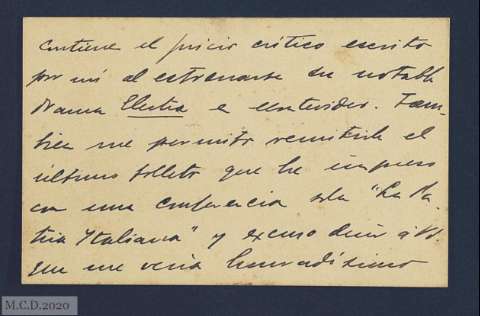 contiene el juicio crítico escrito
por mí al estrenarse su notable
drama Electra e Montevideo. Tam-
bien me permito remitirle el
último folleto que he impreso
con una conferencia sobre "La Pa-
tria Italiana" y excuso decir á Vd.
que me vería honradísimo
M.C.D.2020